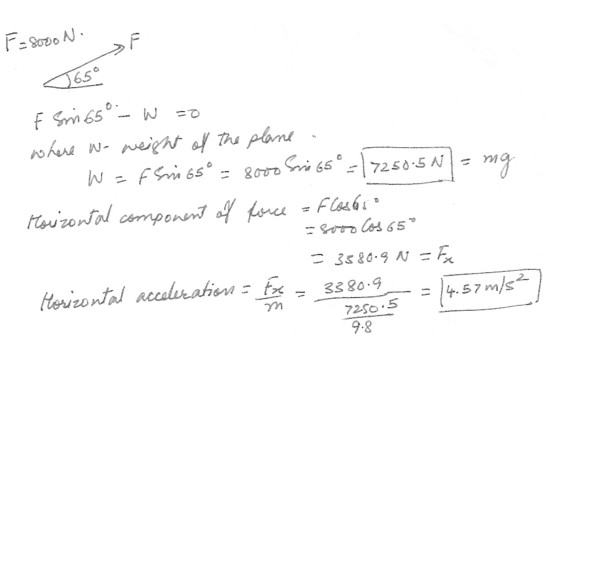 F = 8000 N.
F
65°
F Sin 65° - W = 0
where W - weight of the plane.
W = F Sin 65° = 8000 Sin 65° = 7250.5 N = mg
Horizontal component of force = F Cos 65°
= 8000 Cos 65°
= 3380.9 N = Fx
Horizontal acceleration = Fx/m = 3380.9 / (7250.5/9.8) = 4.57 m/s²